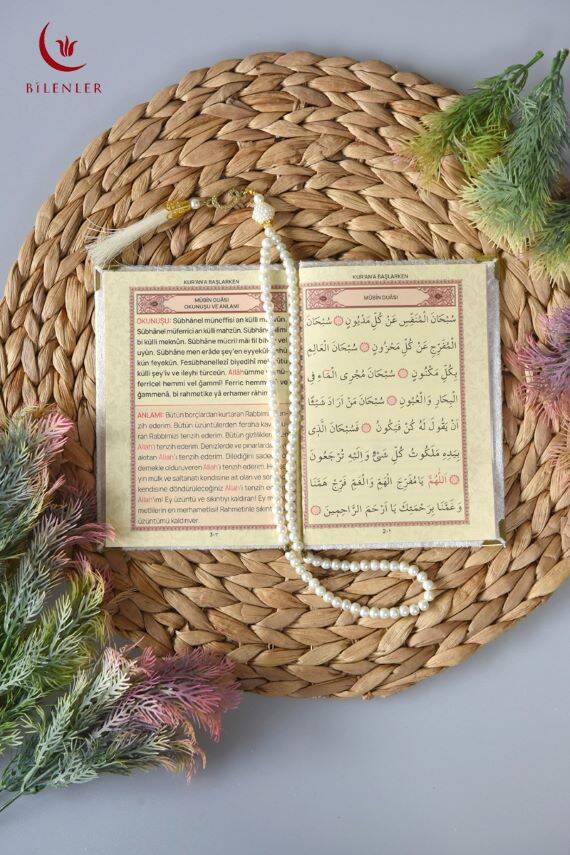 BİLENLER
KUR'AN'A BAŞLARKEN
MÜBİN DUÂSI
OKUNUŞU VE ANLAMI
OKUNUŞU: Sübhânel müneffisi an külli
Sübhânel müferrici an külli mahzûn. Sübhânel
bi külli meknûn. Sübhâne mücrîl mâi fil
uyûn. Sübhâne men erâde şey'en eyyekûle
kün feyekûn. Fesübhanellezî biyedihî
külli şey'iv ve ileyhi türceûn. Allâhümme
ferricel hemmi vel ğammi! Ferric hemmenâ
ğammenâ, bi rahmetike yâ erhamer
ANLAMI: Bütün borçlardan kurtaran Rabbimizi
zih ederim. Bütün üzüntülerden feraha
ran Rabbimizi tenzih ederim. Bütün gizlilikleri
Allah'ı tenzih ederim. Denizlerde ve pınarlarda
akıtan Allah'ı tenzih ederim. Dilediğini sadece
demekle olduruveren Allah'ı tenzih ederim.
yin mülk ve saltanatı kendisine ait olan ve
kendisine döndürüleceğiniz Allah'ı tenzih
Allah'ım! Ey üzüntü ve sıkıntıyı kaldıran! Ey
metlilerin en merhametlisi! Rahmetinle
üzüntümü kaldırıver.
٣٠٢
KUR'AN'A BAŞLARKEN
MÜBİN DUÂSI
سُبْحَانَ الْمُنَفِّسِ عَنْ كُلِّ مَدْيُونٍ سُبْحَانَ
الْمُفَرِّجِ عَنْ كُلِّ مَحْزُونٍ سُبْحَانَ الْعَالِمِ
بِكُلِّ مَكْنُونٍ سُبْحَانَ مُجْرِى الْمَاءِ فِى
الْبِحَارِ وَالْعُيُونِ سُبْحَانَ مَنْ اَرَادَ شَيْئًا
اَنْ يَقُولَ لَهُ كُنْ فَيَكُونُ فَسُبْحَانَ الَّذِى
بِيَدِهِ مَلَكُوتُ كُلِّ شَىْءٍ وَاِلَيْهِ تُرْجَعُونَ
اَللّٰهُمَّ يَا مُفَرِّجَ الْهَمِّ وَالْغَمِّ فَرِّجْ هَمَّنَا
وَغَمَّنَا بِرَحْمَتِكَ يَا اَرْحَمَ الرَّاحِمِينَ